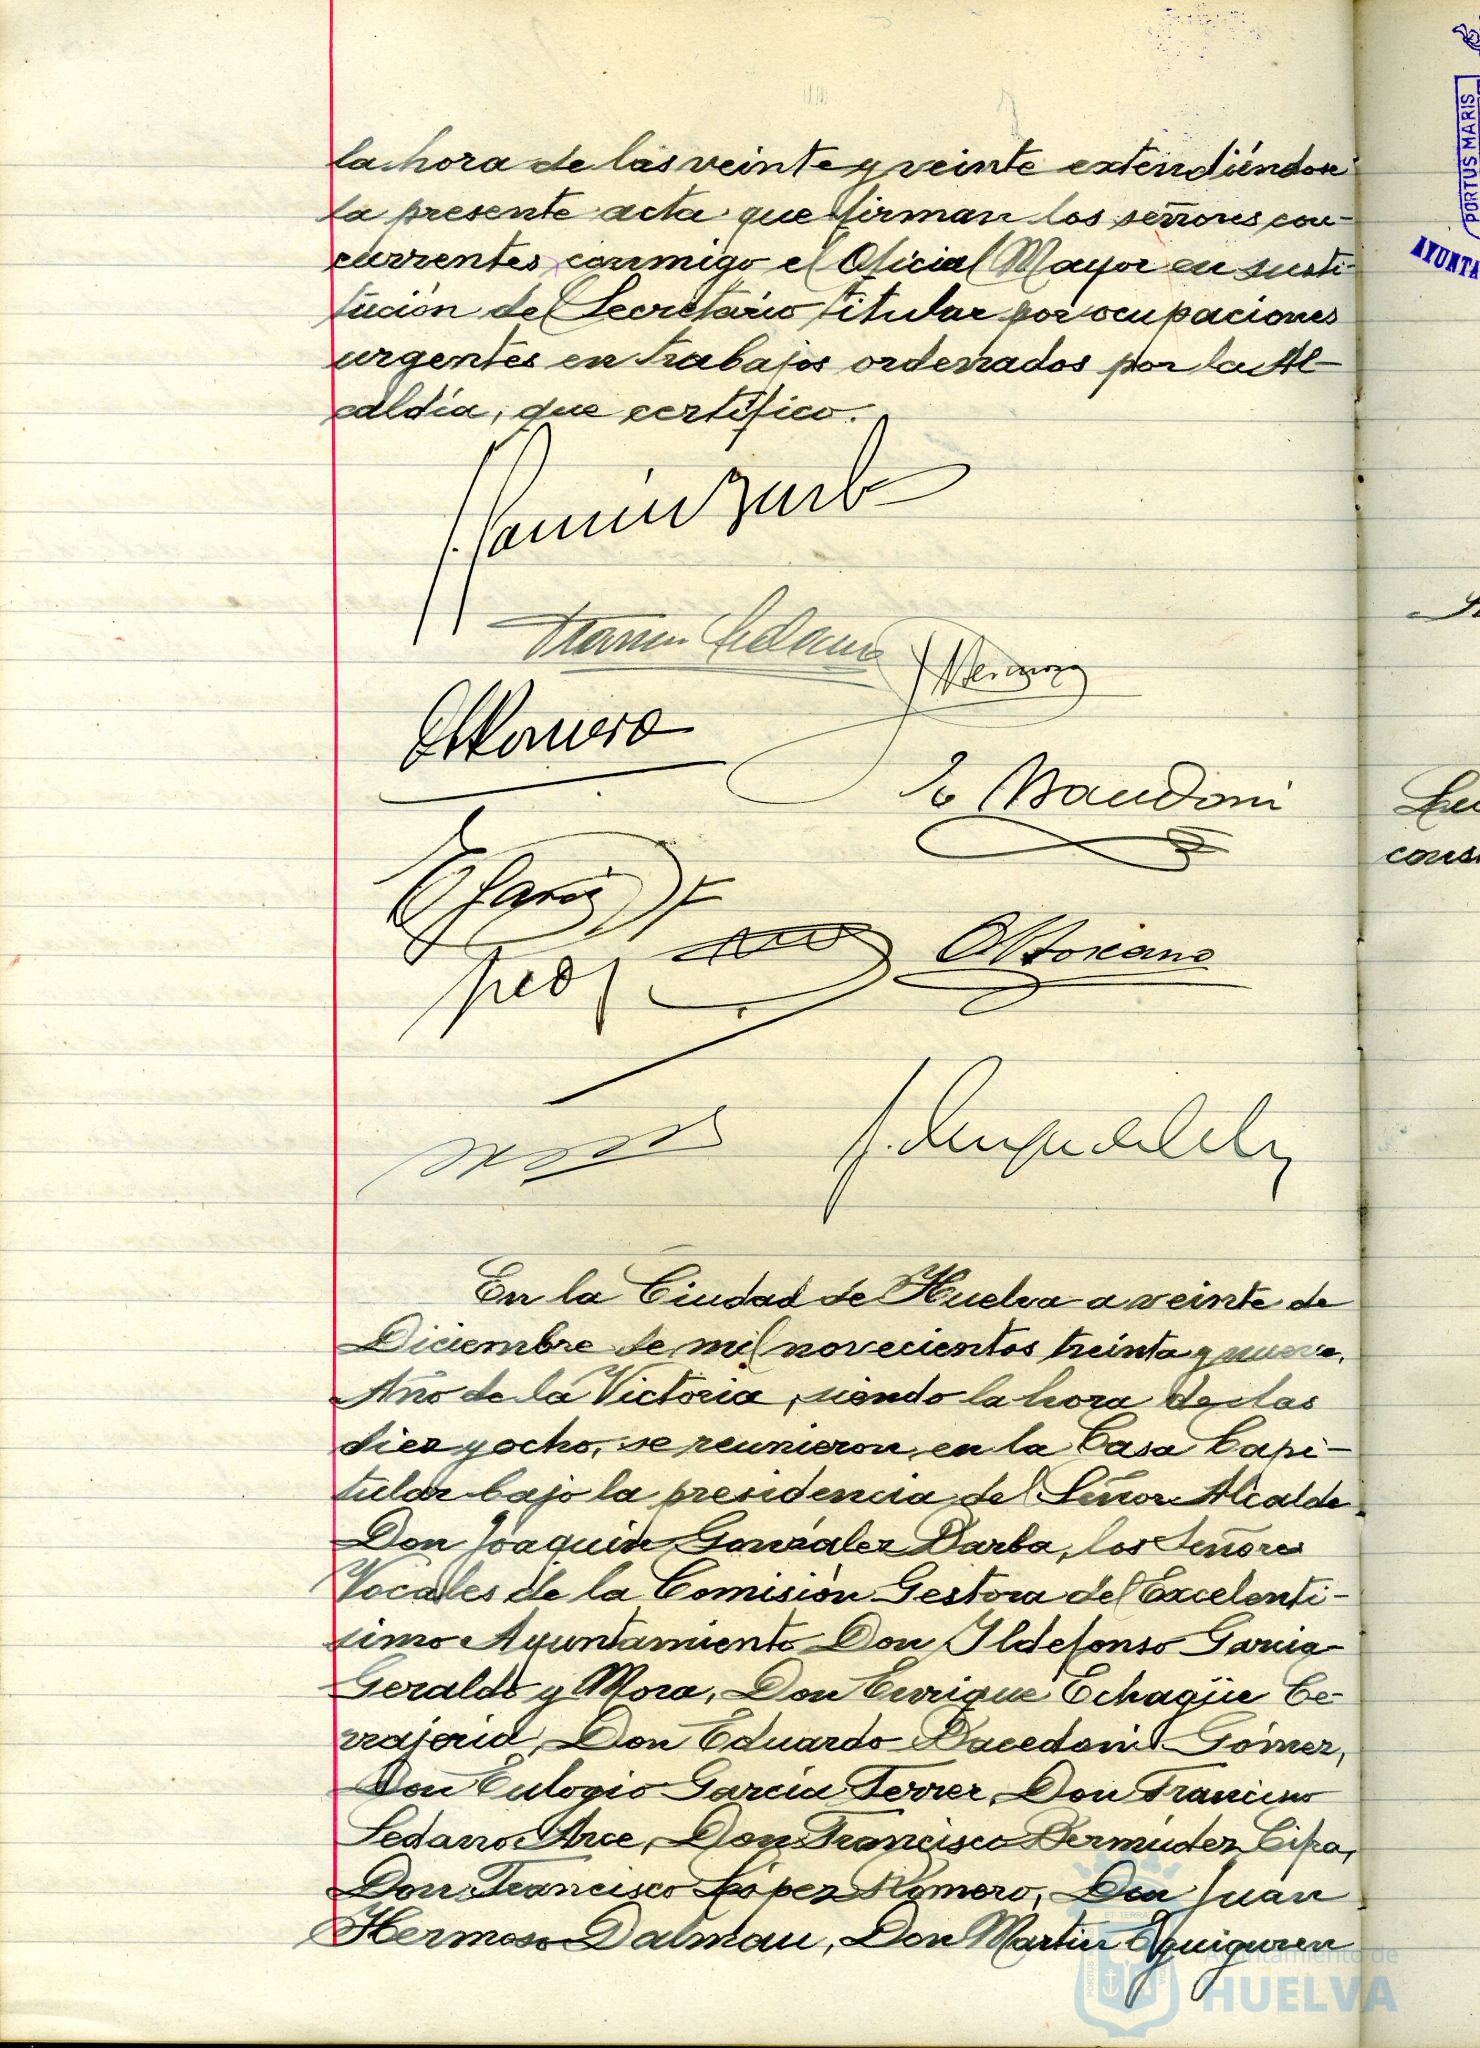 la hora de las veinte y veinte extendiéndose
la presente acta que firman los señores con-
currentes conmigo el Oficial Mayor en susti-
tución del Secretario titular por ocupaciones
urgentes en trabajos ordenados por la Al-
caldía, que certifico.
En la Ciudad de Huelva a veinte de
Diciembre de mil novecientos treinta y nueve.
Año de la Victoria, siendo la hora de las
diez y ocho, se reunieron en la Casa Capi-
tular bajo la presidencia del Señor Alcalde
Don Joaquín González Barba, los Señores
Vocales de la Comisión Gestora del Excelentí-
simo Ayuntamiento Don Ildefonso Garcia
Geraldo y Mora, Don Enrique Echagüe Ce-
rrajería, Don Eduardo Gómez,
Don Eulogio García Ferrer, Don Francisco
Sedano Arce, Don Francisco Bermúdez Cifra,
Don Francisco López Romero, Don Juan
Hermoso Dalmau, Don Martin Eguiguren
PORTUS MARIS
AYUNTA
Ayuntamiento de
HUELVA